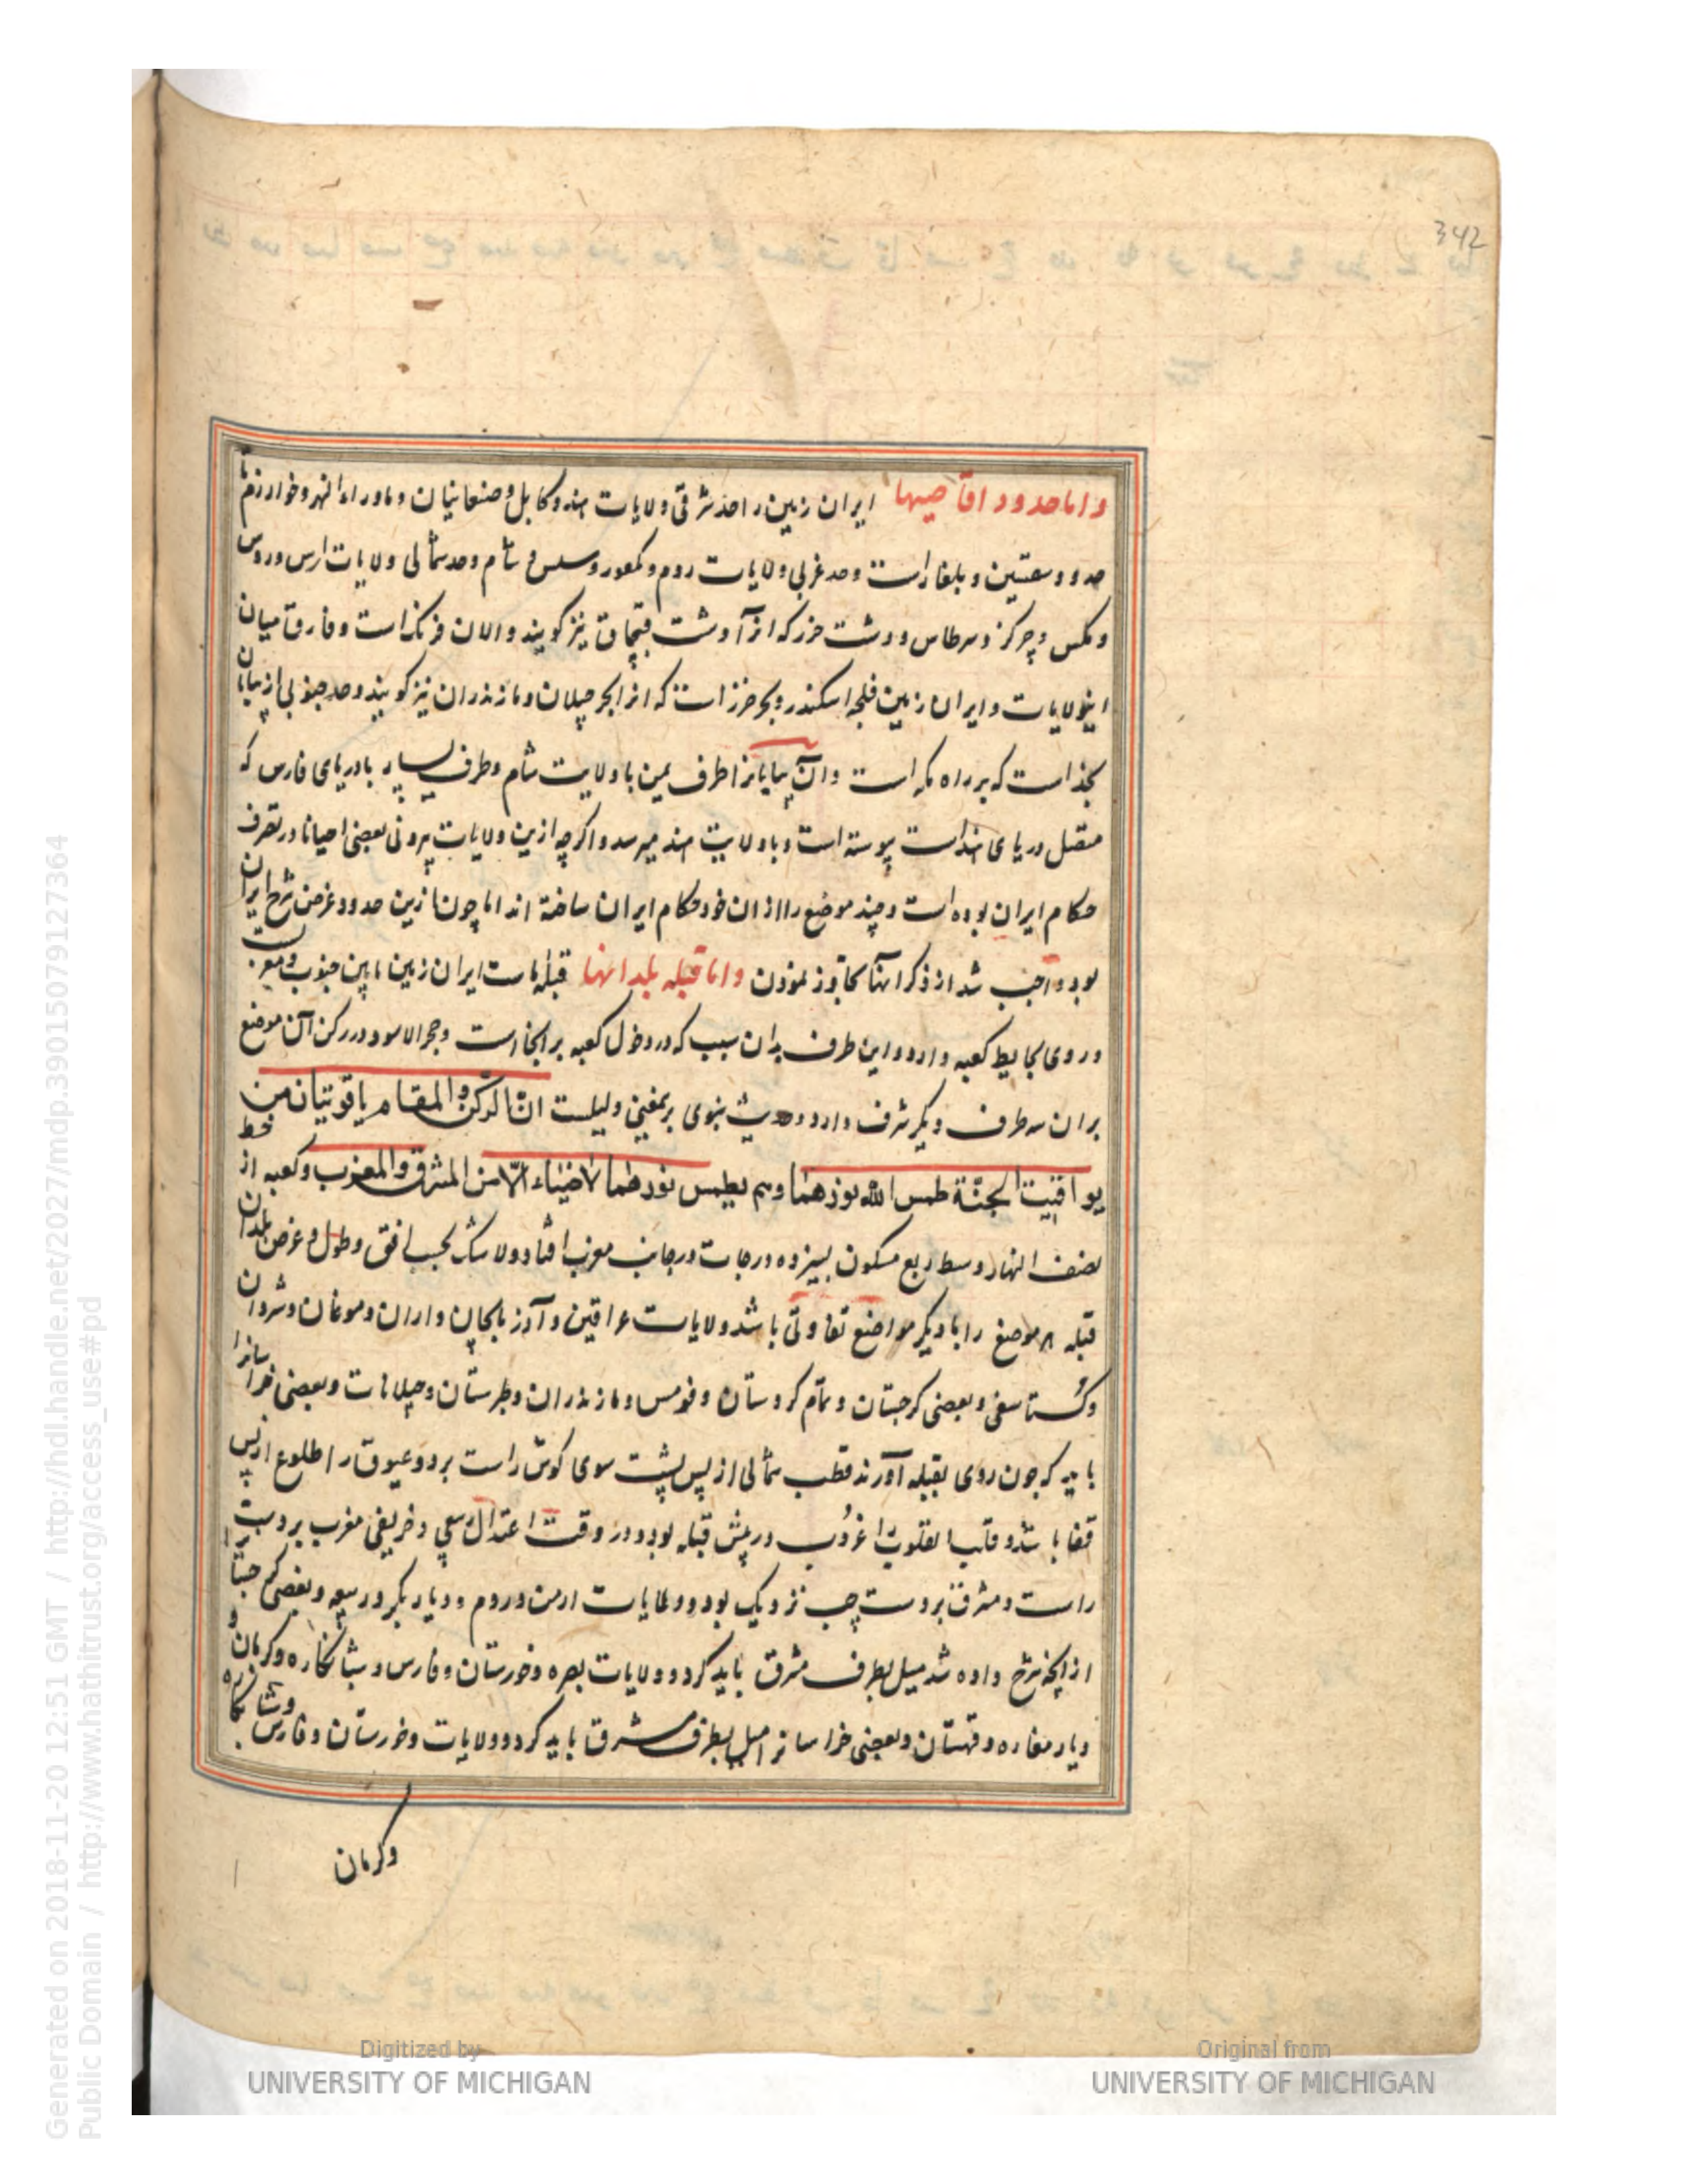 342
واما حدود اقاصیها ایران زمین را حد شرقی ولایات سند و کابل و صغانیان و ماوراء النهر و خوارزم تا
حدود سقسین و بلغار است و حد غربی ولایات روم و نکفور و سیس و شام و حد شمالی ولایات ارس و روس
و مکس و چرکز و برطاس و دشت خزر که آنرا دشت قپچاق نیز گویند و الان فرنک است و فارق میان
اینولایات و ایران زمین فلجه اسکندر و بحر خزر است که آنرا بحر جیلان و مازندران نیز گویند و حد جنوبی از بیابان
نجد است که بر راه مکه است و آن بیابانرا طرف یمین با ولایت شام و طرف یسار با دریای فارس که
متصل دریای هند است پیوسته است و با ولایت هند میرسد و اگرچه ازین ولایات بیرونی بعضی احیانا در تصرف
حکام ایران بوده است و چند موضع را از آن خود حکام ایران ساخته اند اما چون ازین حدود غرض شرح ایران
بود واجب شد از ذکر آنها تجاوز نمودن واما قبله بلدانها قبلهٔ ایران زمین مابین جنوب و مغرب
و روی بحایط کعبه دارد و این طرف بدان سبب که در دخول کعبه بر آنجا است و حجر الاسود در رکن آن موضع
بر آن سه طرف دیگر شرف دارد و حدیث نبوی برمعنی دلیلست انّ الرّکن والمقام یاقوتتان من
یواقیت الجنّة طمس الله نورهما ولم یطمس نورهما لاضیاء الّا من المشرق والمغرب و کعبه از خط
نصف النهار وسط ربع مسکون بسیزده درجات در جانب مغرب افتاد و لا شک بحسب افق و طول و عرض بلدان
قبله هر موضع را با دیگر مواضع تفاوتی باشد ولایات عراقین و آذربایجان و اران و موغان و شروان
و کستاسفی و بعضی گرجستان و تمام کردستان و قومس و مازندران و طبرستان و جیلانات و بعضی خراسانرا
باید که چون روی بقبله آورند قطب شمالی از پس پشت سوی گوش راست بر و عیوق را طلوع از پس
قفا باشد و قلب العقرب را غروب در پیش قبله بود و در وقت اعتدال ربیعی و خریفی مغرب بر دست
راست و مشرق بر دست چپ نزدیک بود و ولایات ارمن و روم و دیار بکر و ربیعه و بعضی گرجستانرا
از آنچه شرح داده شد میل بطرف مشرق باید کرد و ولایات بصره و خوزستان و فارس و شبانکاره و کرمان و
دیار مفازه و قهستان و بعضی خراسانرا میل بطرف مشرق باید کرد و ولایات و خوزستان و فارس و شبانکاره
و کرمان
Digitized by
UNIVERSITY OF MICHIGAN
Original from
UNIVERSITY OF MICHIGAN
Generated on 2018-11-20 12:51 GMT / http://hdl.handle.net/2027/mdp.39015079127364
Public Domain / http://www.hathitrust.org/access_use#pd